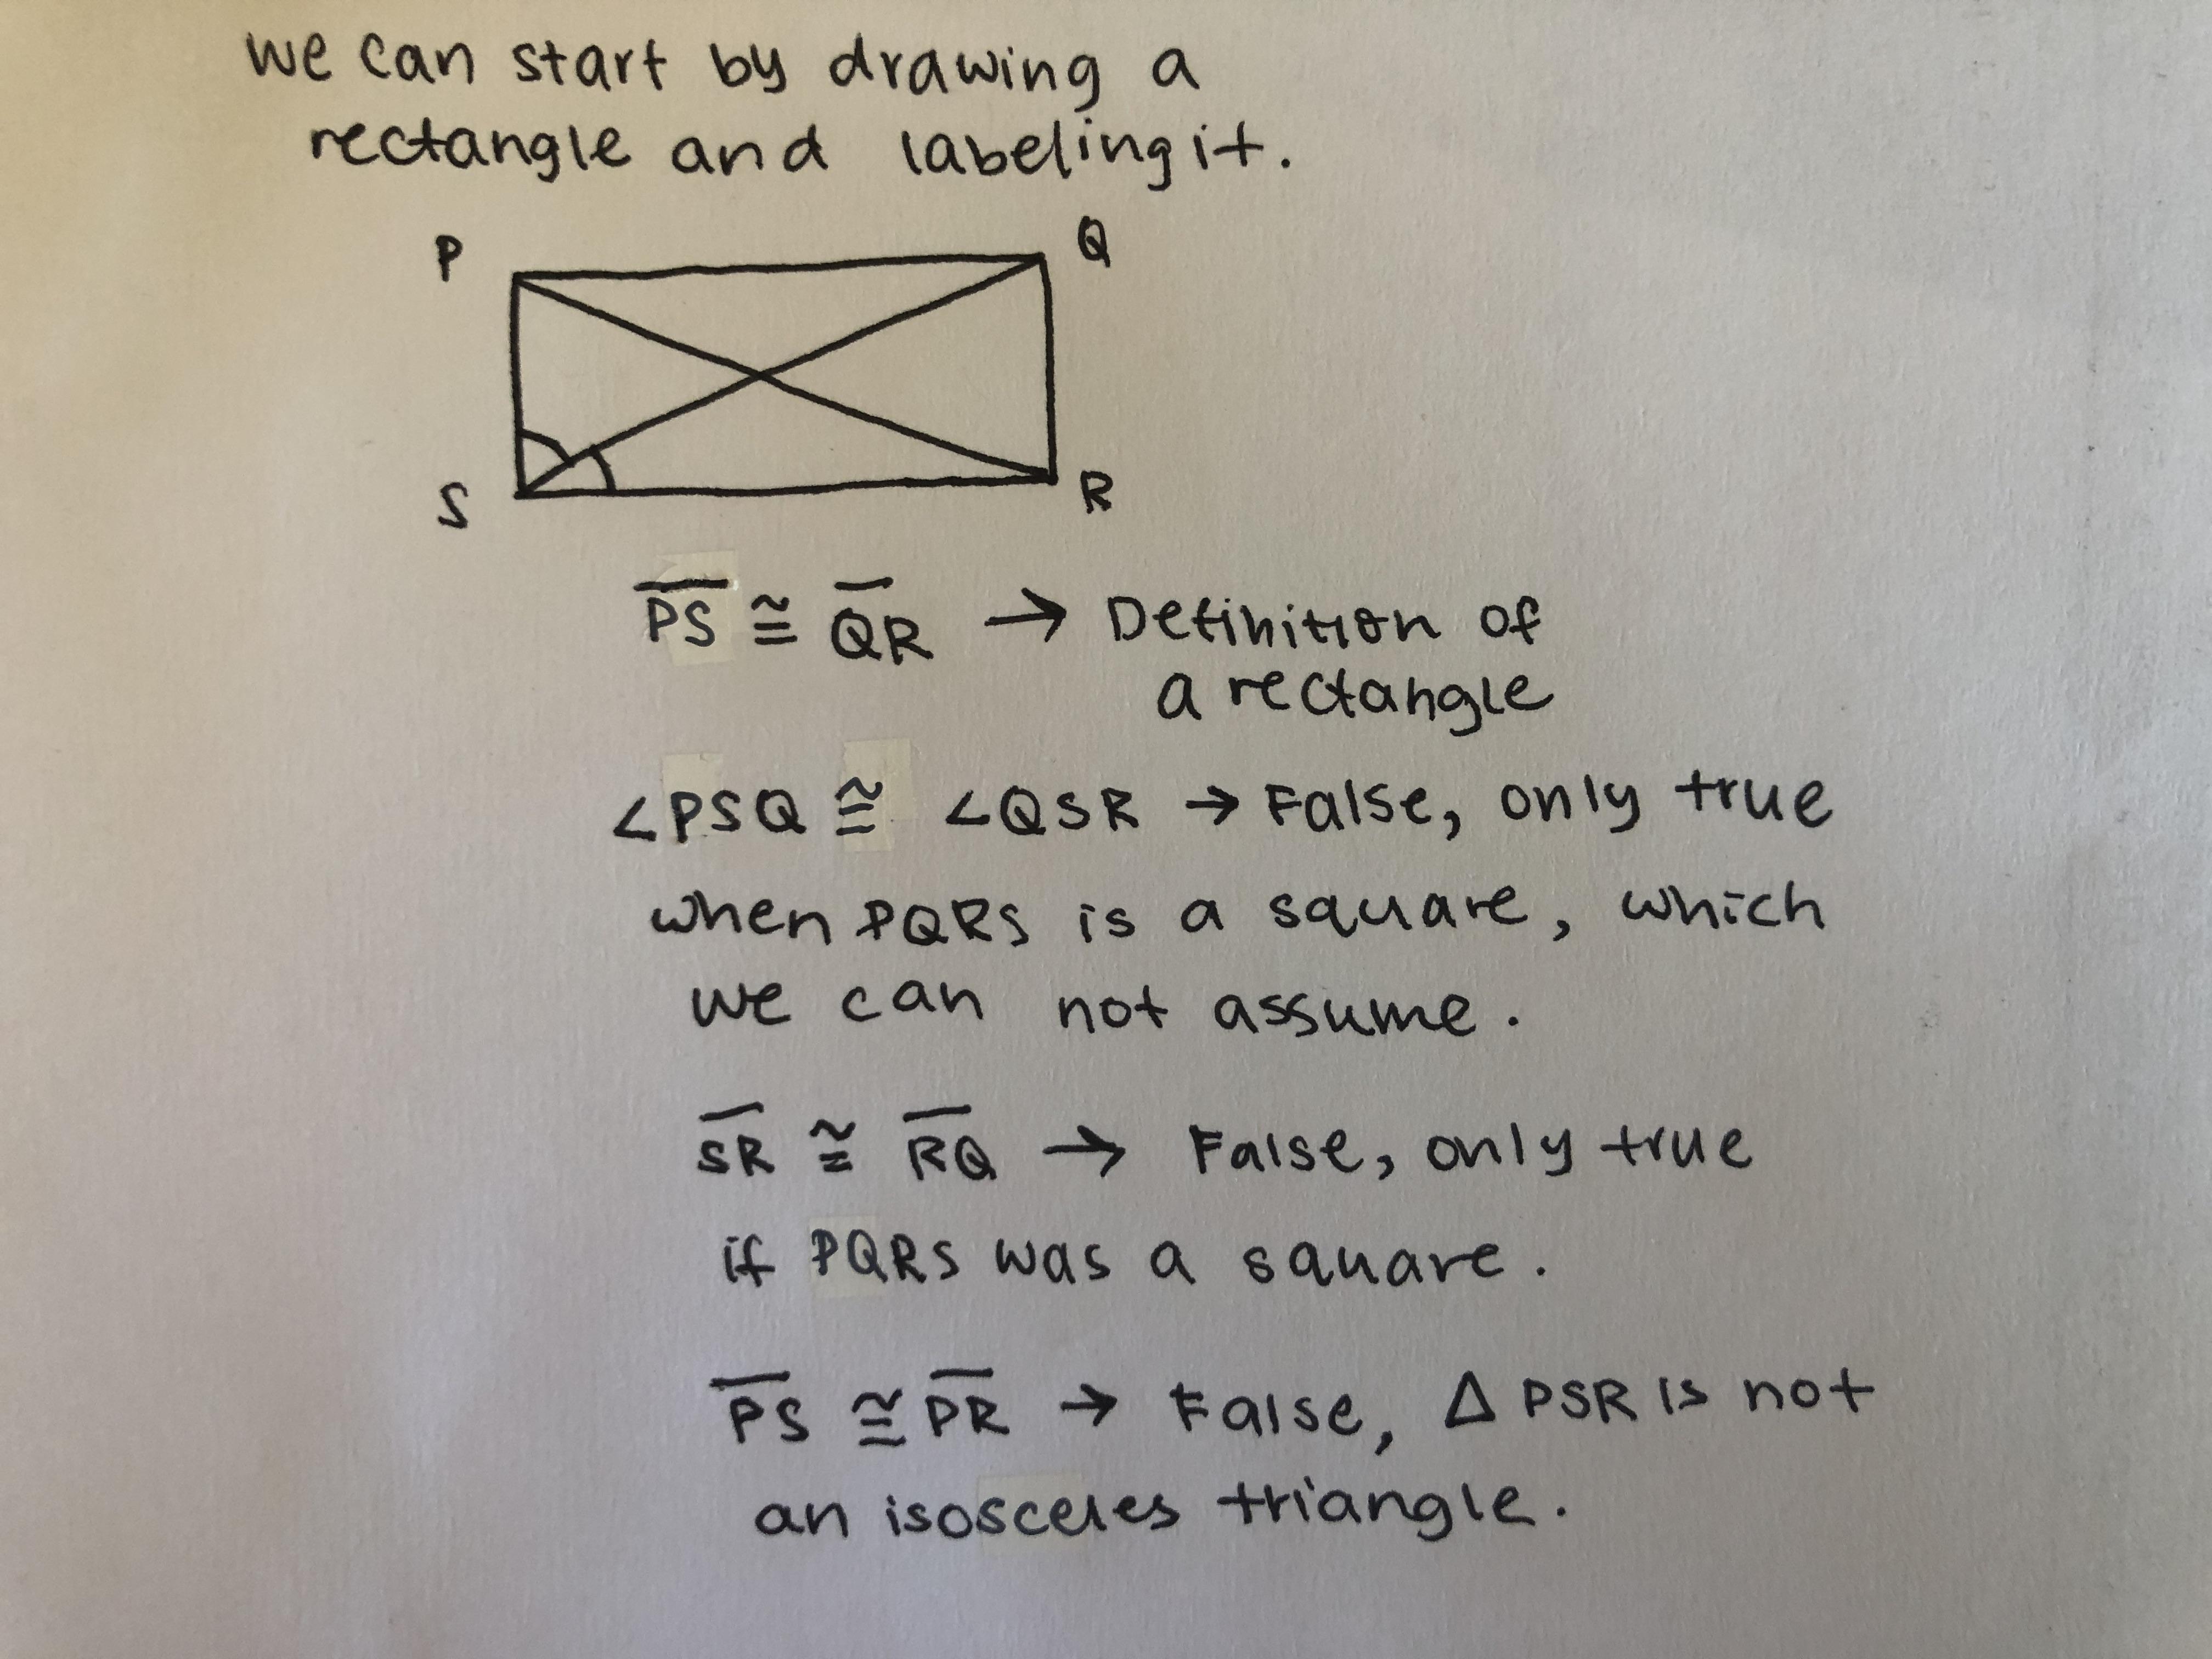 we can start by drawing a
rectangle and labeling it.
P
Q
S
R
PS ≅ QR → Definition of
a rectangle
∠PSQ ≅ ∠QSR → False, only true
when PQRS is a square, which
we can not assume.
SR ≅ RQ → False, only true
if PQRS was a square.
PS ≅ PR → False, Δ PSR is not
an isosceles triangle.